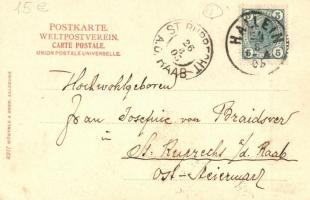 15€
POSTKARTE.
WELTPOSTVEREIN.
CARTE POSTALE.
UNION POSTALE UNIVERSELLE.
ST. RUPRECHT
A.D. RAAB
26
HALLEIN
5 5
Hochwohlgeboren
Frau Josephine von Braidsver
in
St. Ruprecht a/d. Raab
Ost-Steiermark